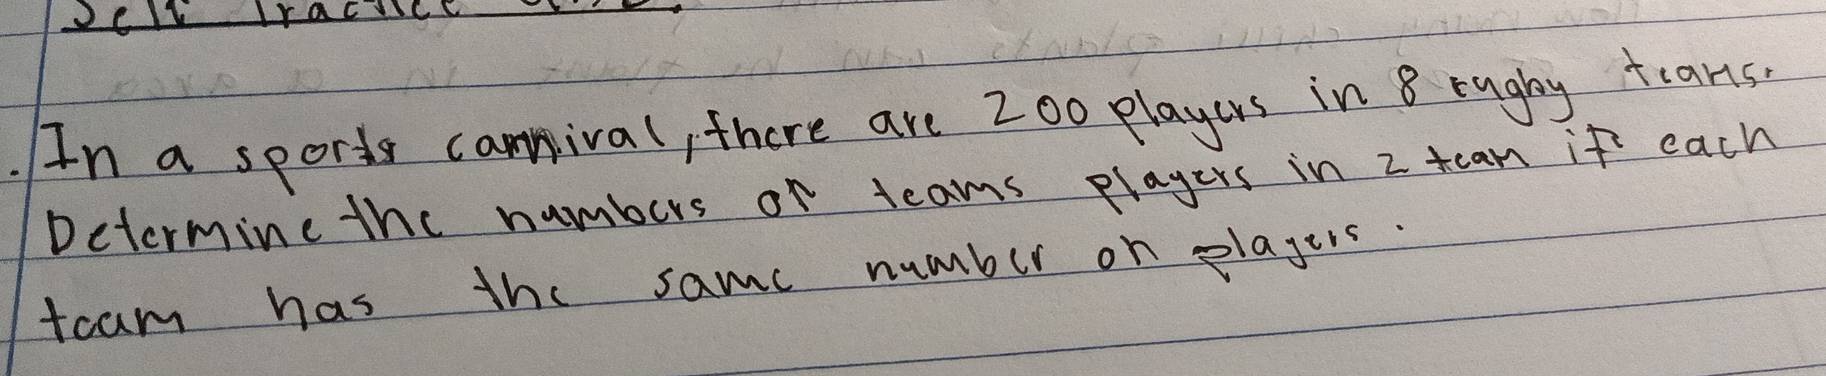 Self Practice
In a sports carnival, there are 200 players in 8 rugby teams.
Determine the numbers of teams players in 2 team if each
team has the same number on players.